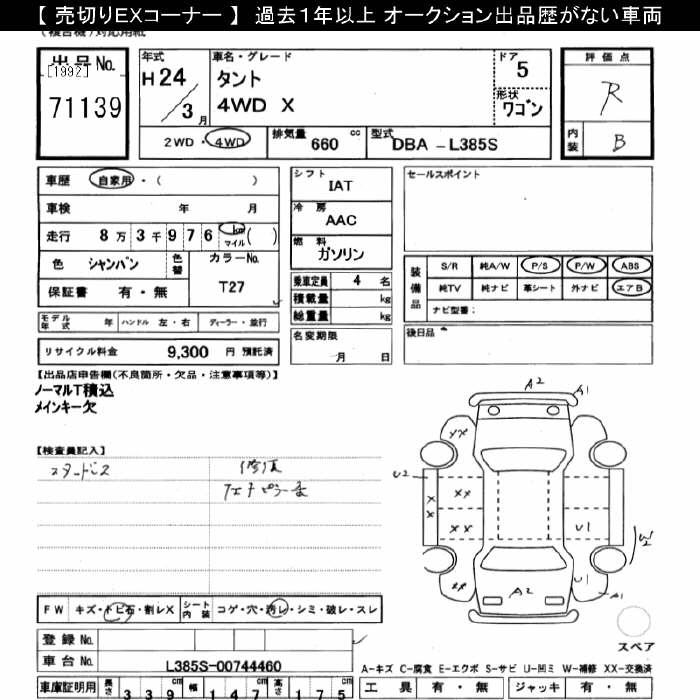 【 売切りEXコーナー 】 過去1年以上 オークション出品歴がない車両
出品No.
[1992]
71139
年式
H 24
3 月
車名・グレード
タント
4WD X
ドア
5
形状
ワゴン
評価点
R
内装
B
2WD・4WD
排気量 660 cc
型式 DBA - L385S
車歴 自家用・( )
車検 年 月
走行 8万3千976 km マイル ( )
色 シャンパン 色替
カラーNo. T27
保証書 有・無
モデル年式 年 ハンドル 左・右 ディーラー・並行
リサイクル料金 9,300 円 預託済
シフト
IAT
冷房
AAC
燃料
ガソリン
乗車定員 4 名
積載量 kg
総重量 kg
名変期限
月 日
セールスポイント
装備品
S/R 純A/W P/S P/W ABS
純TV 純ナビ 革シート 外ナビ エアB
ナビ型番:
後日品
【出品店申告欄(不良箇所・欠品・注意事項等)】
ノーマルT積込
メインキー欠
【検査員記入】
スタートﾞレス
修復
A2
A1
XX
U2
XX
XX
XX
U1
W2
XX
A2
U1
A1
スペア
FW キズ・トビ石・割レX シート内装 コゲ・穴・汚レ・シミ・破レ・スレ
登録No.
車台No. L385S-00744460
車庫証明用 長さ 339 幅 147 高さ 175
A-キズ C-腐食 E-エクボ S-サビ U-凹ミ W-補修 XX-交換済
工具 有・無 ジャッキ 有・無